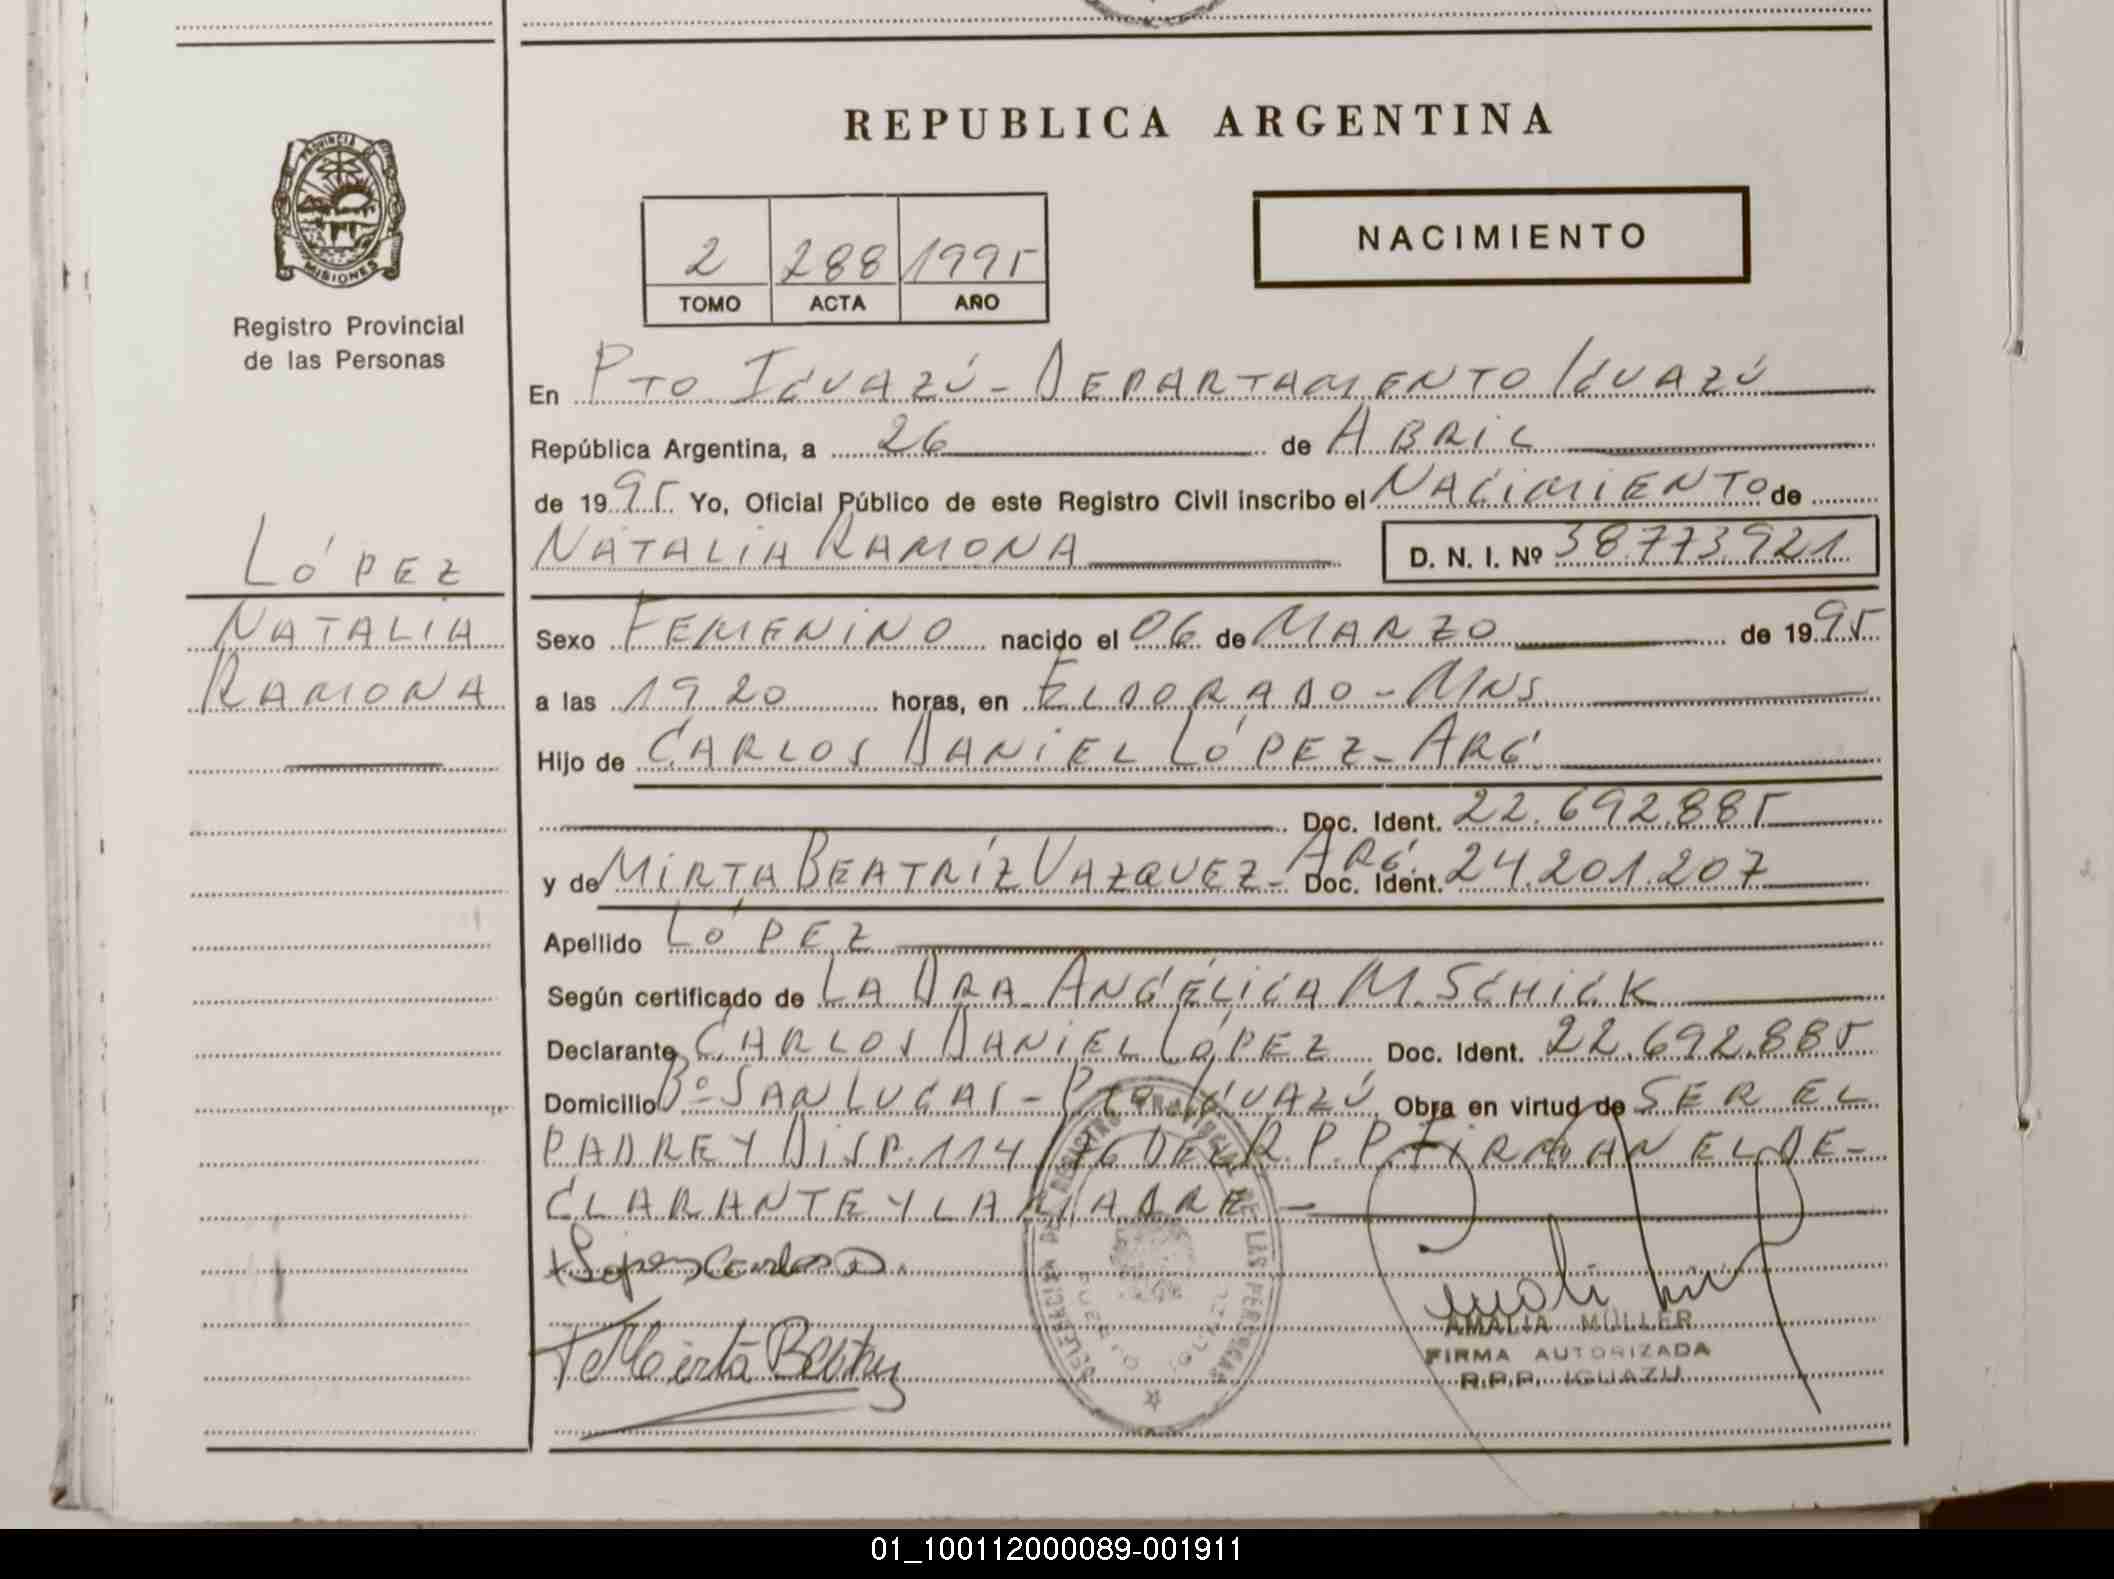 REPUBLICA ARGENTINA
PROVINCIA
MISIONES
Registro Provincial
de las Personas
NACIMIENTO
2 288 1995
TOMO ACTA AÑO
En PTO IGUAZÚ - DEPARTAMENTO IGUAZÚ
República Argentina, a 26 de ABRIL
de 1995 Yo, Oficial Público de este Registro Civil inscribo el NACIMIENTO de
NATALIA RAMONA D. N. I. Nº 38.773.921
LÓPEZ
NATALIA
RAMONA
Sexo FEMENINO nacido el 06 de MARZO de 1995
a las 19 20 horas, en ELDORADO - MNS.
Hijo de CARLOS DANIEL LÓPEZ - ARG.
Doc. Ident. 22.692.885
y de MIRTA BEATRÍZ VAZQUEZ - ARG. Doc. Ident. 24.201.207
Apellido LÓPEZ
Según certificado de LA DRA ANGÉLICA M. SCHICK
Declarante CARLOS DANIEL LÓPEZ Doc. Ident. 22.692.885
Domicilio Bº SAN LUCAS - PTO IGUAZÚ Obra en virtud de SER EL
PADRE Y DISP. 114/76 DEL R.P.P. FIRMAN EL DE-
CLARANTE Y LA MADRE -
Lopez Carlos D.
Mirta Beatriz
DEL REGISTRO PROVINCIAL DE LAS PERSONAS
PUERTO IGUAZU
AMALIA MÜLLER
FIRMA AUTORIZADA
R.P.P. IGUAZU
01_100112000089-001911